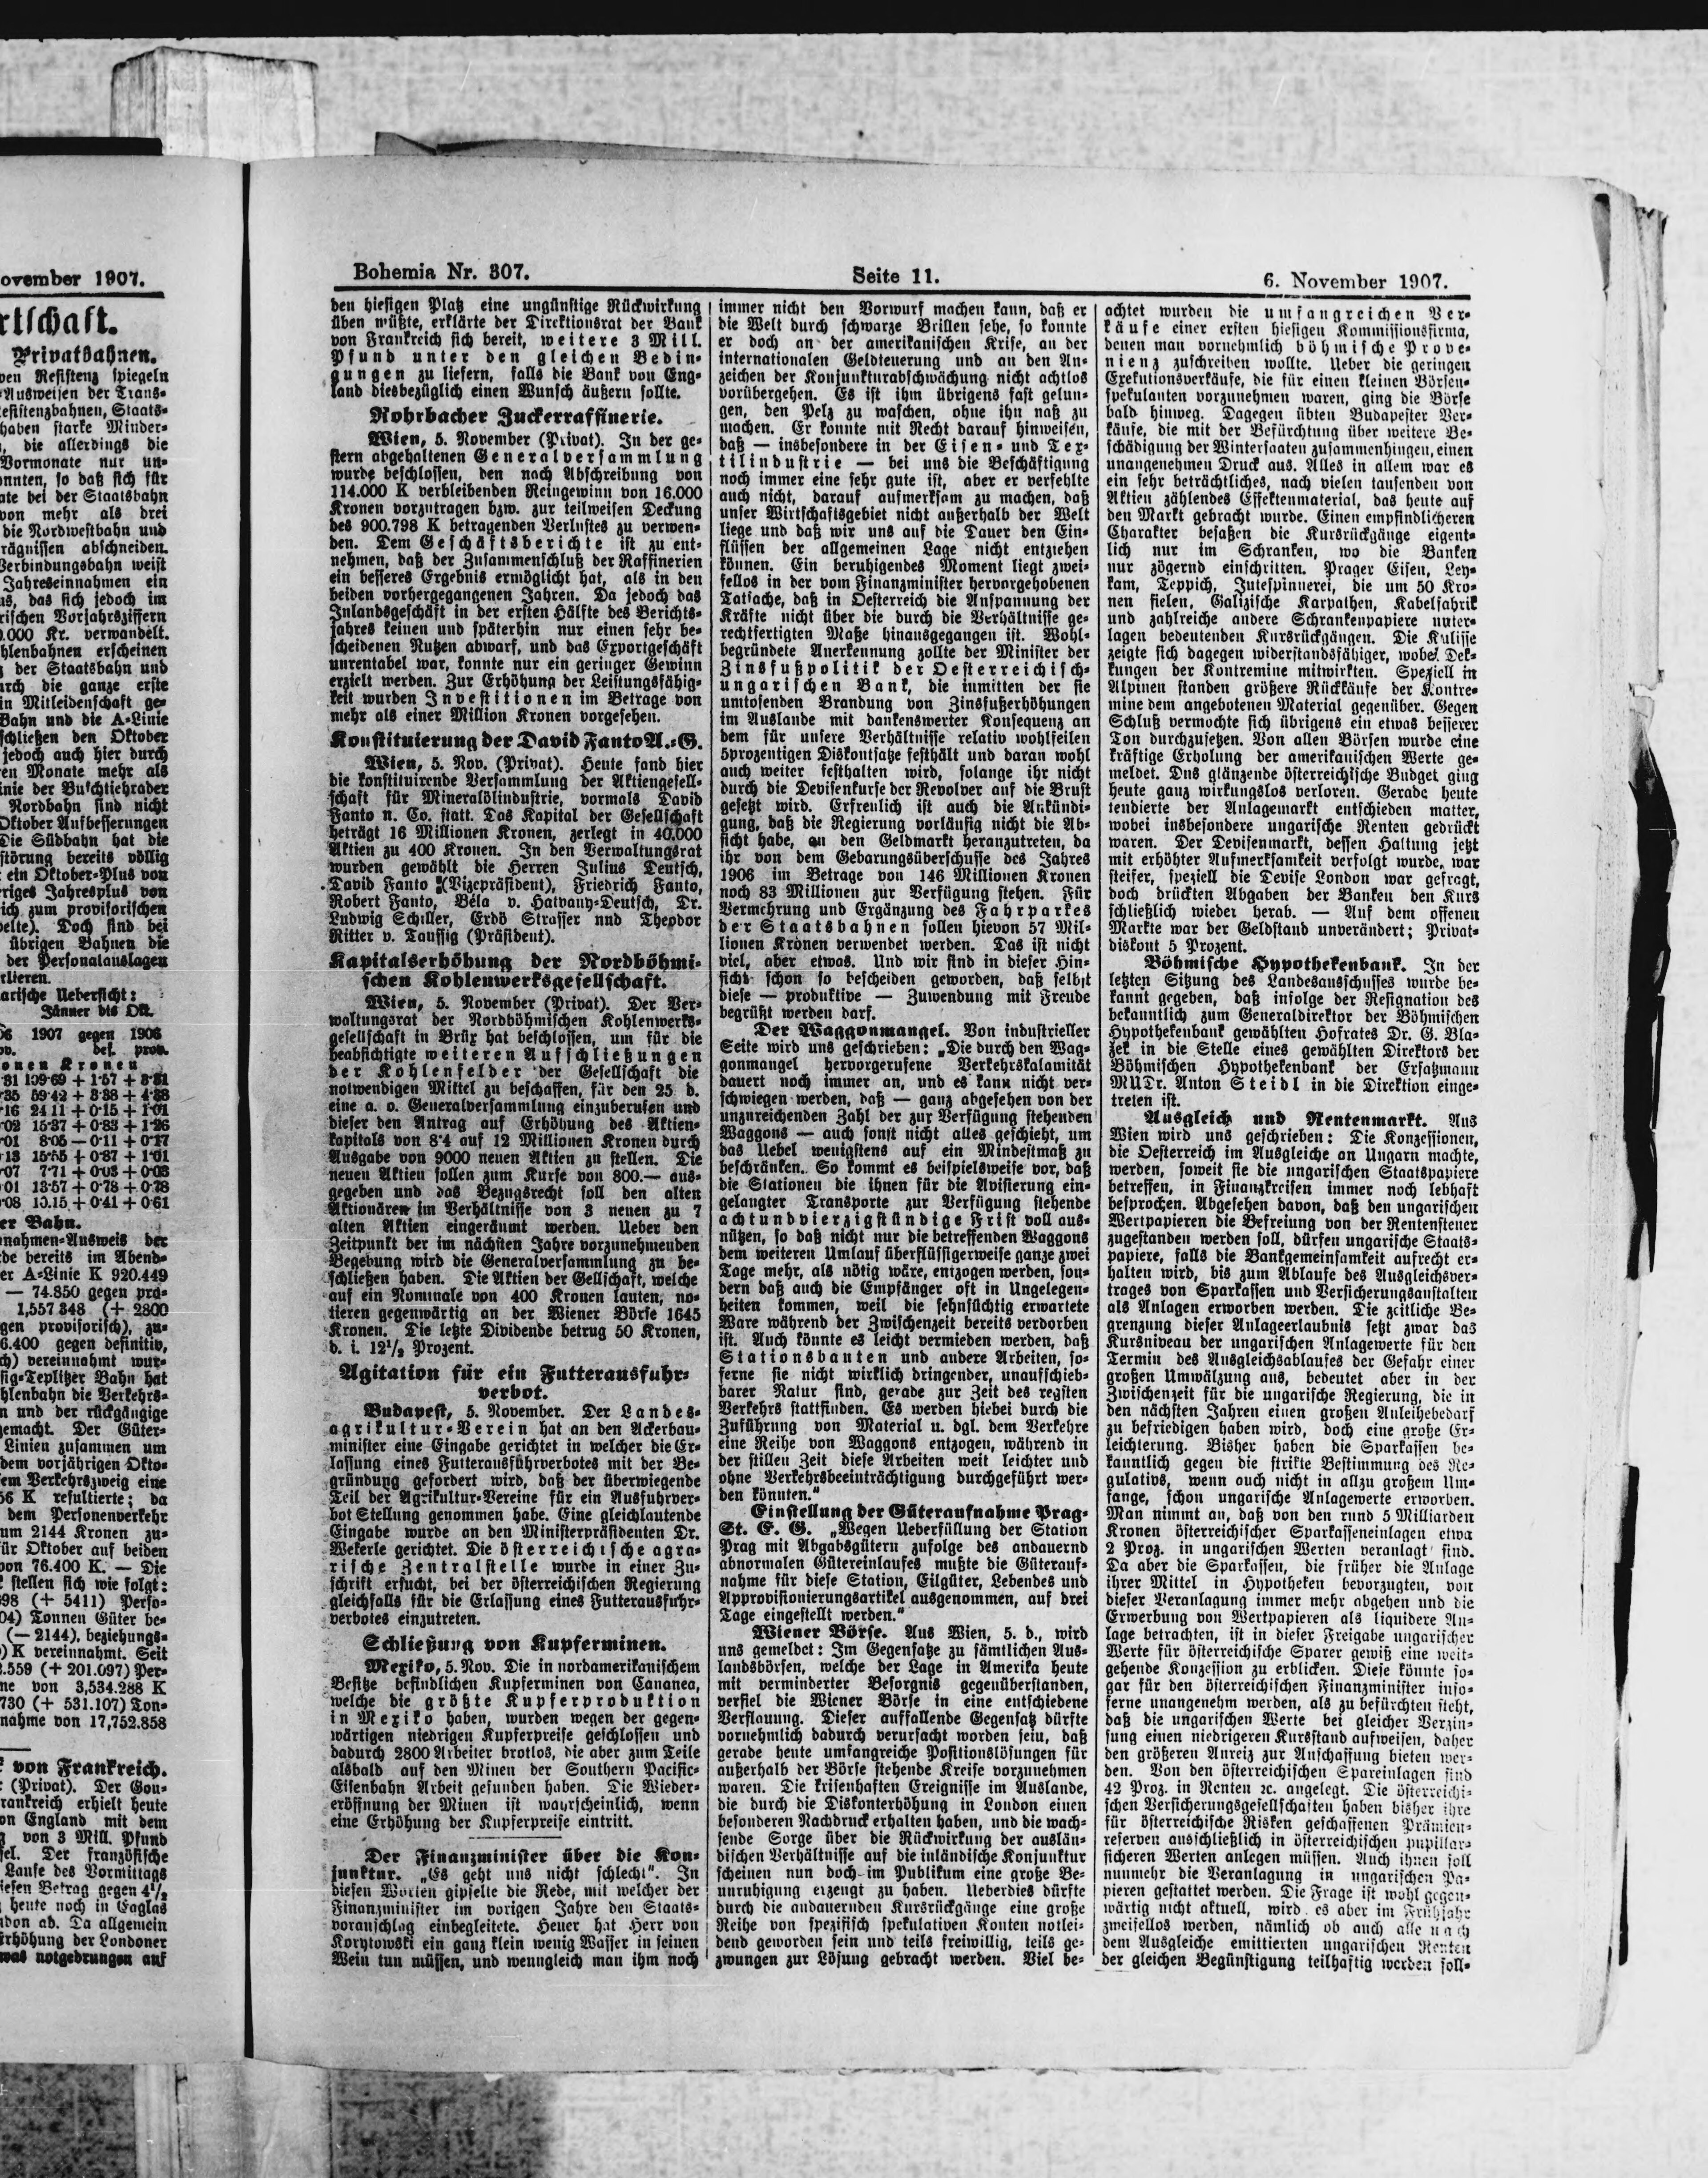 ovember 1907.
rtschaft.
Privatbahnen.
ven Resistenz spiegeln
Ausweisen der Trans-
esistenzbahnen, Staats-
haben starke Minder-
, die allerdings die
Vormonate nur un-
onnten, so daß sich für
ate bei der Staatsbahn
von mehr als drei
die Nordwestbahn und
rägnissen abschneiden.
Verbindungsbahn weist
Jahreseinnahmen ein
us, das sich jedoch im
rischen Vorjahrsziffern
0.000 Kr. verwandelt.
hlenbahnen erscheinen
der Staatsbahn und
urch die ganze erste
in Mitleidenschaft ge-
Bahn und die A-Linie
schließen den Oktober
jedoch auch hier durch
en Monate mehr als
inie der Buschtiehrader
Nordbahn sind nicht
Oktober Aufbesserungen
Die Südbahn hat die
störung bereits völlig
ein Oktober-Plus von
riges Jahresplus von
ich zum provisorischen
elte). Doch sind bei
übrigen Bahnen die
der Personalauslagen
rlieren.
arische Uebersicht:
Jänner bis Okt.
06 1907 gegen 1906
ov. def. prov.
onen Kronen
81 109·69 + 1·57 + 3·81
35 59·42 + 3·38 + 4·38
16 24 11 + 0·15 + 1·01
02 15·37 + 0·83 + 1·26
01 8·05 — 0·11 + 0·17
13 15·55 + 0·87 + 1·01
07 7·71 + 0·03 + 0·03
01 13·57 + 0·78 + 0·78
08 10.15 + 0·41 + 0·61
er Bahn.
nahmen-Ausweis der
de bereits im Abend-
er A-Linie K 920.449
— 74.850 gegen pro-
1,557 348 (+ 2800
gen provisorisch), zu-
6.400 gegen definitiv,
ch) vereinnahmt wur-
sig-Teplitzer Bahn hat
hlenbahn die Verkehrs-
n und der rückgängige
gemacht. Der Güter-
Linien zusammen um
dem vorjährigen Okto-
em Verkehrszweig eine
56 K resultierte; da
dem Personenverkehr
um 2144 Kronen zu-
ür Oktober auf beiden
von 76.400 K. — Die
stellen sich wie folgt:
98 (+ 5411) Perso-
04) Tonnen Güter be-
(— 2144), beziehungs-
) K vereinnahmt. Seit
.559 (+ 201.097) Per-
ne von 3,534.288 K
730 (+ 531.107) Ton-
nahme von 17,752.858
von Frankreich.
(Privat). Der Gou-
rankreich erhielt heute
on England mit dem
von 3 Mill. Pfund
sel. Der französische
Laufe des Vormittags
iesen Betrag gegen 4½
heute noch in Eaglas
don ab. Da allgemein
Erhöhung der Londoner
was notgedrungen auf
Bohemia Nr. 307.
Seite 11.
6. November 1907.
den hiesigen Platz eine ungünstige Rückwirkung
üben müßte, erklärte der Direktionsrat der Bank
von Frankreich sich bereit, weitere 3 Mill.
Pfund unter den gleichen Bedin-
gungen zu liefern, falls die Bank von Eng-
land diesbezüglich einen Wunsch äußern sollte.
Rohrbacher Zuckerraffinerie.
Wien, 5. November (Privat). In der ge-
stern abgehaltenen Generalversammlung
wurde beschlossen, den nach Abschreibung von
114.000 K verbleibenden Reingewinn von 16.000
Kronen vorzutragen bzw. zur teilweisen Deckung
des 900.798 K betragenden Verlustes zu verwen-
den. Dem Geschäftsberichte ist zu ent-
nehmen, daß der Zusammenschluß der Raffinerien
ein besseres Ergebnis ermöglicht hat, als in den
beiden vorhergegangenen Jahren. Da jedoch das
Inlandsgeschäft in der ersten Hälfte des Berichts-
jahres keinen und späterhin nur einen sehr be-
scheidenen Nutzen abwarf, und das Exportgeschäft
unrentabel war, konnte nur ein geringer Gewinn
erzielt werden. Zur Erhöhung der Leistungsfähig-
keit wurden Investitionen im Betrage von
mehr als einer Million Kronen vorgesehen.
Konstituierung der David Fanto A.-G.
Wien, 5. Nov. (Privat). Heute fand hier
die konstituirende Versammlung der Aktiengesell-
schaft für Mineralölindustrie, vormals David
Fanto n. Co. statt. Das Kapital der Gesellschaft
beträgt 16 Millionen Kronen, zerlegt in 40.000
Aktien zu 400 Kronen. In den Verwaltungsrat
wurden gewählt die Herren Julius Deutsch,
David Fanto (Vizepräsident), Friedrich Fanto,
Robert Fanto, Béla v. Hatvany-Deutsch, Dr.
Ludwig Schiller, Erdö Strasser nnd Theodor
Ritter v. Taussig (Präsident).
Kapitalserhöhung der Nordböhmi-
schen Kohlenwerksgesellschaft.
Wien, 5. November (Privat). Der Ver-
waltungsrat der Nordböhmischen Kohlenwerks-
gesellschaft in Brüx hat beschlossen, um für die
beabsichtigte weiteren Aufschließungen
der Kohlenfelder der Gesellschaft die
notwendigen Mittel zu beschaffen, für den 25 d.
eine a. o. Generalversammlung einzuberufen und
dieser den Antrag auf Erhöhung des Aktien-
kapitals von 8·4 auf 12 Millionen Kronen durch
Ausgabe von 9000 neuen Aktien zu stellen. Die
neuen Aktien sollen zum Kurse von 800.— aus-
gegeben und das Bezugsrecht soll den alten
Aktionären im Verhältnisse von 3 neuen zu 7
alten Aktien eingeräumt werden. Ueber den
Zeitpunkt der im nächsten Jahre vorzunehmenden
Begebung wird die Generalversammlung zu be-
schließen haben. Die Aktien der Gellschaft, welche
auf ein Nominale von 400 Kronen lauten, no-
tieren gegenwärtig an der Wiener Börse 1645
Kronen. Die letzte Dividende betrug 50 Kronen,
d. i. 12½ Prozent.
Agitation für ein Futterausfuhr-
verbot.
Budapest, 5. November. Der Landes-
agrikultur-Verein hat an den Ackerbau-
minister eine Eingabe gerichtet in welcher die Er-
lassung eines Futterausfuhrverbotes mit der Be-
gründung gefordert wird, daß der überwiegende
Teil der Agrikultur-Vereine für ein Ausfuhrver-
bot Stellung genommen habe. Eine gleichlautende
Eingabe wurde an den Ministerpräsidenten Dr.
Wekerle gerichtet. Die österreichische agra-
rische Zentralstelle wurde in einer Zu-
schrift ersucht, bei der österreichischen Regierung
gleichfalls für die Erlassung eines Futterausfuhr-
verbotes einzutreten.
Schließung von Kupferminen.
Mexiko, 5. Nov. Die in nordamerikanischem
Besitze befindlichen Kupferminen von Cananea,
welche die größte Kupferproduktion
in Mexiko haben, wurden wegen der gegen-
wärtigen niedrigen Kupferpreise geschlossen und
dadurch 2800 Arbeiter brotlos, die aber zum Teile
alsbald auf den Minen der Southern Pacific-
Eisenbahn Arbeit gefunden haben. Die Wieder-
eröffnung der Minen ist wahrscheinlich, wenn
eine Erhöhung der Kupferpreise eintritt.
Der Finanzminister über die Kon-
junktur. „Es geht uns nicht schlecht". In
diesen Worten gipfelte die Rede, mit welcher der
Finanzminister im vorigen Jahre den Staats-
voranschlag einbegleitete. Heuer hat Herr von
Korytowski ein ganz klein wenig Wasser in seinen
Wein tun müssen, und wenngleich man ihm noch
immer nicht den Vorwurf machen kann, daß er
die Welt durch schwarze Brillen sehe, so konnte
er doch an der amerikanischen Krise, an der
internationalen Geldteuerung und an den An-
zeichen der Konjunkturabschwächung nicht achtlos
vorübergehen. Es ist ihm übrigens fast gelun-
gen, den Pelz zu waschen, ohne ihn naß zu
machen. Er konnte mit Recht darauf hinweisen,
daß — insbesondere in der Eisen- und Tex-
tilindustrie — bei uns die Beschäftigung
noch immer eine sehr gute ist, aber er verfehlte
auch nicht, darauf aufmerksam zu machen, daß
unser Wirtschaftsgebiet nicht außerhalb der Welt
liege und daß wir uns auf die Dauer den Ein-
flüssen der allgemeinen Lage nicht entziehen
können. Ein beruhigendes Moment liegt zwei-
fellos in der vom Finanzminister hervorgehobenen
Tatsache, daß in Oesterreich die Anspannung der
Kräfte nicht über die durch die Verhältnisse ge-
rechtfertigten Maße hinausgegangen ist. Wohl-
begründete Anerkennung zollte der Minister der
Zinsfußpolitik der Oesterreichisch-
ungarischen Bank, die inmitten der sie
umtosenden Brandung von Zinsfußerhöhungen
im Auslande mit dankenswerter Konsequenz an
dem für unsere Verhältnisse relativ wohlfeilen
5prozentigen Diskontsatze festhält und daran wohl
auch weiter festhalten wird, solange ihr nicht
durch die Devisenkurse der Revolver auf die Brust
gesetzt wird. Erfreulich ist auch die Ankündi-
gung, daß die Regierung vorläufig nicht die Ab-
sicht habe, an den Geldmarkt heranzutreten, da
ihr von dem Gebarungsüberschusse des Jahres
1906 im Betrage von 146 Millionen Kronen
noch 83 Millionen zur Verfügung stehen. Für
Vermehrung und Ergänzung des Fahrparkes
der Staatsbahnen sollen hievon 57 Mil-
lionen Kronen verwendet werden. Das ist nicht
viel, aber etwas. Und wir sind in dieser Hin-
sicht schon so bescheiden geworden, daß selbst
diese — produktive — Zuwendung mit Freude
begrüßt werden darf.
Der Waggonmangel. Von industrieller
Seite wird uns geschrieben: „Die durch den Wag-
gonmangel hervorgerufene Verkehrskalamität
dauert noch immer an, und es kann nicht ver-
schwiegen werden, daß — ganz abgesehen von der
unzureichenden Zahl der zur Verfügung stehenden
Waggons — auch sonst nicht alles geschieht, um
das Uebel wenigstens auf ein Mindestmaß zu
beschränken. So kommt es beispielsweise vor, daß
die Stationen die ihnen für die Avisierung ein-
gelangter Transporte zur Verfügung stehende
achtundvierzigstündige Frist voll aus-
nützen, so daß nicht nur die betreffenden Waggons
dem weiteren Umlauf überflüssigerweise ganze zwei
Tage mehr, als nötig wäre, entzogen werden, son-
dern daß auch die Empfänger oft in Ungelegen-
heiten kommen, weil die sehnsüchtig erwartete
Ware während der Zwischenzeit bereits verdorben
ist. Auch könnte es leicht vermieden werden, daß
Stationsbauten und andere Arbeiten, so-
ferne sie nicht wirklich dringender, unaufschieb-
barer Natur sind, gerade zur Zeit des regsten
Verkehrs stattfinden. Es werden hiebei durch die
Zuführung von Material u. dgl. dem Verkehre
eine Reihe von Waggons entzogen, während in
der stillen Zeit diese Arbeiten weit leichter und
ohne Verkehrsbeeinträchtigung durchgeführt wer-
den könnten."
Einstellung der Güteraufnahme Prag-
St. E. G. „Wegen Ueberfüllung der Station
Prag mit Abgabsgütern zufolge des andauernd
abnormalen Gütereinlaufes mußte die Güterauf-
nahme für diese Station, Eilgüter, Lebendes und
Approvisionierungsartikel ausgenommen, auf drei
Tage eingestellt werden."
Wiener Börse. Aus Wien, 5. d., wird
uns gemeldet: Im Gegensatze zu sämtlichen Aus-
landsbörsen, welche der Lage in Amerika heute
mit verminderter Besorgnis gegenüberstanden,
verfiel die Wiener Börse in eine entschiedene
Verflauung. Dieser auffallende Gegensatz dürfte
vornehmlich dadurch verursacht worden sein, daß
gerade heute umfangreiche Positionslösungen für
außerhalb der Börse stehende Kreise vorzunehmen
waren. Die krisenhaften Ereignisse im Auslande,
die durch die Diskonterhöhung in London einen
besonderen Nachdruck erhalten haben, und die wach-
sende Sorge über die Rückwirkung der auslän-
dischen Verhältnisse auf die inländische Konjunktur
scheinen nun doch im Publikum eine große Be-
unruhigung erzeugt zu haben. Ueberdies dürfte
durch die andauernden Kursrückgänge eine große
Reihe von spezifisch spekulativen Konten notlei-
dend geworden sein und teils freiwillig, teils ge-
zwungen zur Lösung gebracht werden. Viel be-
achtet wurden die umfangreichen Ver-
käufe einer ersten hiesigen Kommissionsfirma,
denen man vornehmlich böhmische Prove-
nienz zuschreiben wollte. Ueber die geringen
Exekutionsverkäufe, die für einen kleinen Börsen-
spekulanten vorzunehmen waren, ging die Börse
bald hinweg. Dagegen übten Budapester Ver-
käufe, die mit der Befürchtung über weitere Be-
schädigung der Wintersaaten zusammenhingen, einen
unangenehmen Druck aus. Alles in allem war es
ein sehr beträchtliches, nach vielen tausenden von
Aktien zählendes Effektenmaterial, das heute auf
den Markt gebracht wurde. Einen empfindlicheren
Charakter besaßen die Kursrückgänge eigent-
lich nur im Schranken, wo die Banken
nur zögernd einschritten. Prager Eisen, Ley-
kam, Teppich, Jutespinnerei, die um 50 Kro-
nen fielen, Galizische Karpathen, Kabelfabrik
und zahlreiche andere Schrankenpapiere unter-
lagen bedeutenden Kursrückgängen. Die Kulisse
zeigte sich dagegen widerstandsfähiger, wobei Dek-
kungen der Kontremine mitwirkten. Speziell in
Alpinen standen größere Rückkäufe der Kontre-
mine dem angebotenen Material gegenüber. Gegen
Schluß vermochte sich übrigens ein etwas besserer
Ton durchzusetzen. Von allen Börsen wurde eine
kräftige Erholung der amerikanischen Werte ge-
meldet. Das glänzende österreichische Budget ging
heute ganz wirkungslos verloren. Gerade heute
tendierte der Anlagemarkt entschieden matter,
wobei insbesondere ungarische Renten gedrückt
waren. Der Devisenmarkt, dessen Haltung jetzt
mit erhöhter Aufmerksamkeit verfolgt wurde, war
steifer, speziell die Devise London war gefragt,
doch drückten Abgaben der Banken den Kurs
schließlich wieder herab. — Auf dem offenen
Markte war der Geldstand unverändert; Privat-
diskont 5 Prozent.
Böhmische Hypothekenbank. In der
letzten Sitzung des Landesausschusses wurde be-
kannt gegeben, daß infolge der Resignation des
bekanntlich zum Generaldirektor der Böhmischen
Hypothekenbank gewählten Hofrates Dr. G. Bla-
zek in die Stelle eines gewählten Direktors der
Böhmischen Hypothekenbank der Ersatzmann
MUDr. Anton Steidl in die Direktion einge-
treten ist.
Ausgleich und Rentenmarkt. Aus
Wien wird uns geschrieben: Die Konzessionen,
die Oesterreich im Ausgleiche an Ungarn machte,
werden, soweit sie die ungarischen Staatspapiere
betreffen, in Finanzkreisen immer noch lebhaft
besprochen. Abgesehen davon, daß den ungarischen
Wertpapieren die Befreiung von der Rentensteuer
zugestanden werden soll, dürfen ungarische Staats-
papiere, falls die Bankgemeinsamkeit aufrecht er-
halten wird, bis zum Ablaufe des Ausgleichsver-
trages von Sparkassen und Versicherungsanstalten
als Anlagen erworben werden. Die zeitliche Be-
grenzung dieser Anlageerlaubnis setzt zwar das
Kursniveau der ungarischen Anlagewerte für den
Termin des Ausgleichsablaufes der Gefahr einer
großen Umwälzung aus, bedeutet aber in der
Zwischenzeit für die ungarische Regierung, die in
den nächsten Jahren einen großen Anleihebedarf
zu befriedigen haben wird, doch eine große Er-
leichterung. Bisher haben die Sparkassen be-
kanntlich gegen die strikte Bestimmung des Re-
gulativs, wenn auch nicht in allzu großem Um-
fange, schon ungarische Anlagewerte erworben.
Man nimmt an, daß von den rund 5 Milliarden
Kronen österreichischer Sparkasseneinlagen etwa
2 Proz. in ungarischen Werten veranlagt sind.
Da aber die Sparkassen, die früher die Anlage
ihrer Mittel in Hypotheken bevorzugten, von
dieser Veranlagung immer mehr abgehen und die
Erwerbung von Wertpapieren als liquidere An-
lage betrachten, ist in dieser Freigabe ungarischer
Werte für österreichische Sparer gewiß eine weit-
gehende Konzession zu erblicken. Diese könnte so-
gar für den österreichischen Finanzminister inso-
ferne unangenehm werden, als zu befürchten steht,
daß die ungarischen Werte bei gleicher Verzin-
sung einen niedrigeren Kursstand aufweisen, daher
den größeren Anreiz zur Anschaffung bieten wer-
den. Von den österreichischen Spareinlagen sind
42 Proz. in Renten ꝛc. angelegt. Die österreichi-
schen Versicherungsgesellschaften haben bisher ihre
für österreichische Risken geschaffenen Prämien-
reserven ausschließlich in österreichischen pupillar-
sicheren Werten anlegen müssen. Auch ihnen soll
nunmehr die Veranlagung in ungarischen Pa-
pieren gestattet werden. Die Frage ist wohl gegen-
wärtig nicht aktuell, wird es aber im Frühjahr
zweifellos werden, nämlich ob auch alle nach
dem Ausgleiche emittierten ungarischen Renten
der gleichen Begünstigung teilhaftig werden soll-